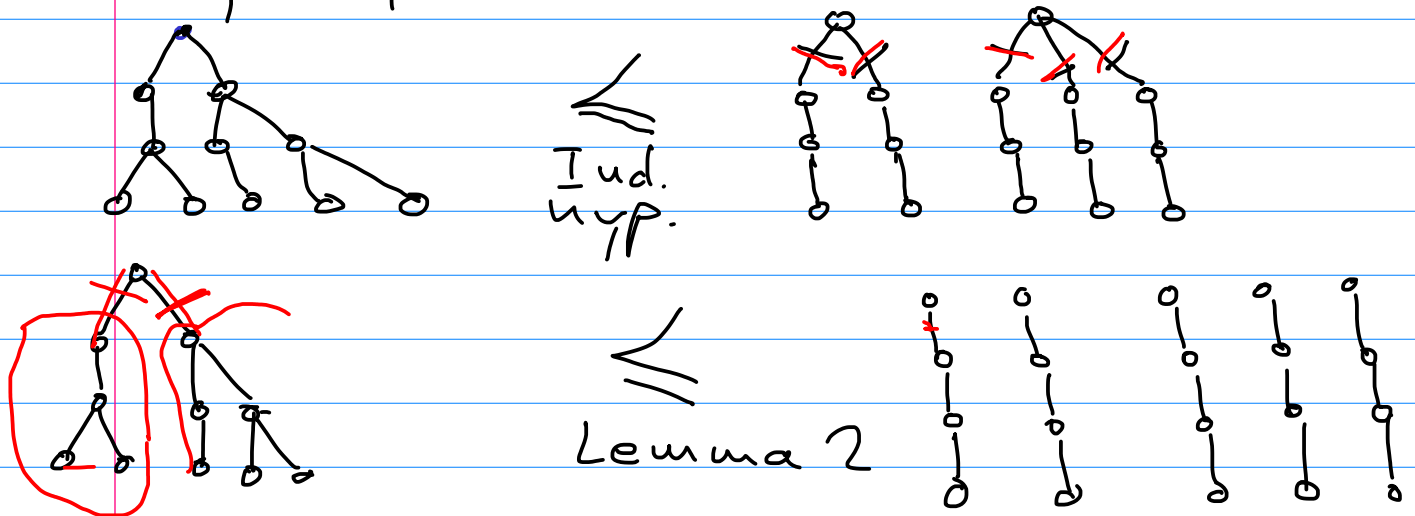 ≤
Ind.
hyp.
≤
Lemma 2